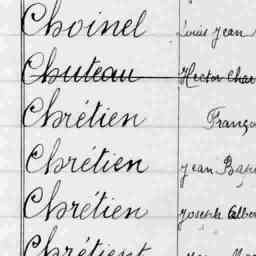 Choinel Louis Jean
Chuteau Hector Char
Chrétien Franço
Chrétien Jean Bap
Chrétien Joseph Alber
Chrétient